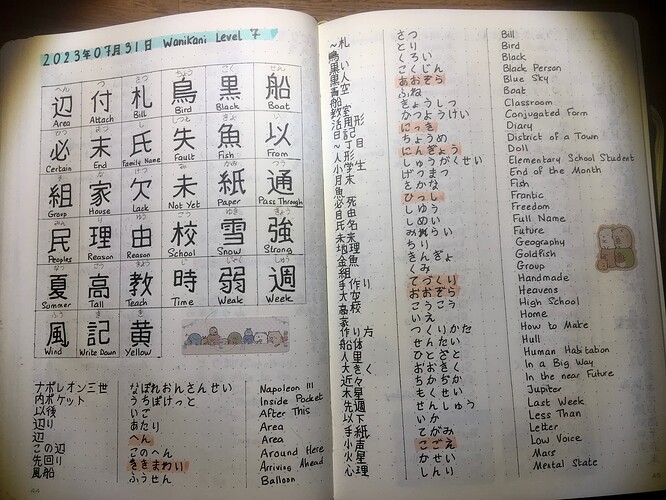 2023年07月31日 WaniKani Level 7
へん つ さつ ちょう こく せん
辺 付 札 鳥 黒 船
Area Attach Bill Bird Black Boat
必 末 氏 失 魚 以
Certain End Family Name Fault Fish From
組 家 欠 未 紙 通
Group House Lack Not Yet Paper Pass Through
民 理 由 校 雪 強
Peoples Reason Reason School Snow Strong
夏 高 教 時 弱 週
Summer Tall Teach Time Weak Week
風 記 黄
Wind Write Down Yellow
ナポレオン三世 なぽれおんさんせい Napoleon III
内ポケット うちぽけっと Inside Pocket
以後 いご After This
辺り あたり Area
辺 へん Area
この辺 このへん Around Here
先回り さきまわり Arriving Ahead
風船 ふうせん Balloon
~札 さつ Bill
鳥 とり Bird
黒い くろい Black
黒人 こくじん Black Person
青空 あおぞら Blue Sky
船 ふね Boat
教室 きょうしつ Classroom
活用形 かつようけい Conjugated Form
日記 にっき Diary
~丁目 ちょうめ District of a Town
人形 にんぎょう Doll
小学生 しょうがくせい Elementary School Student
月末 げつまつ End of the Month
魚 さかな Fish
必死 ひっし Frantic
自由 じゆう Freedom
氏名 しめい Full Name
未来 みらい Future
地理 ちり Geography
金魚 きんぎょ Goldfish
組 くみ Group
手作り てづくり Handmade
大空 おおぞら Heavens
高校 こうこう High School
家 いえ Home
作り方 つくりかた How to Make
船体 せんたい Hull
人里 ひとざと Human Habitation
大きく おおきく In a Big Way
近々 ちかぢか In the near Future
木星 もくせい Jupiter
先週 せんしゅう Last Week
以下 いか Less Than
手紙 てがみ Letter
小声 こごえ Low Voice
火星 かせい Mars
心理 しんり Mental State